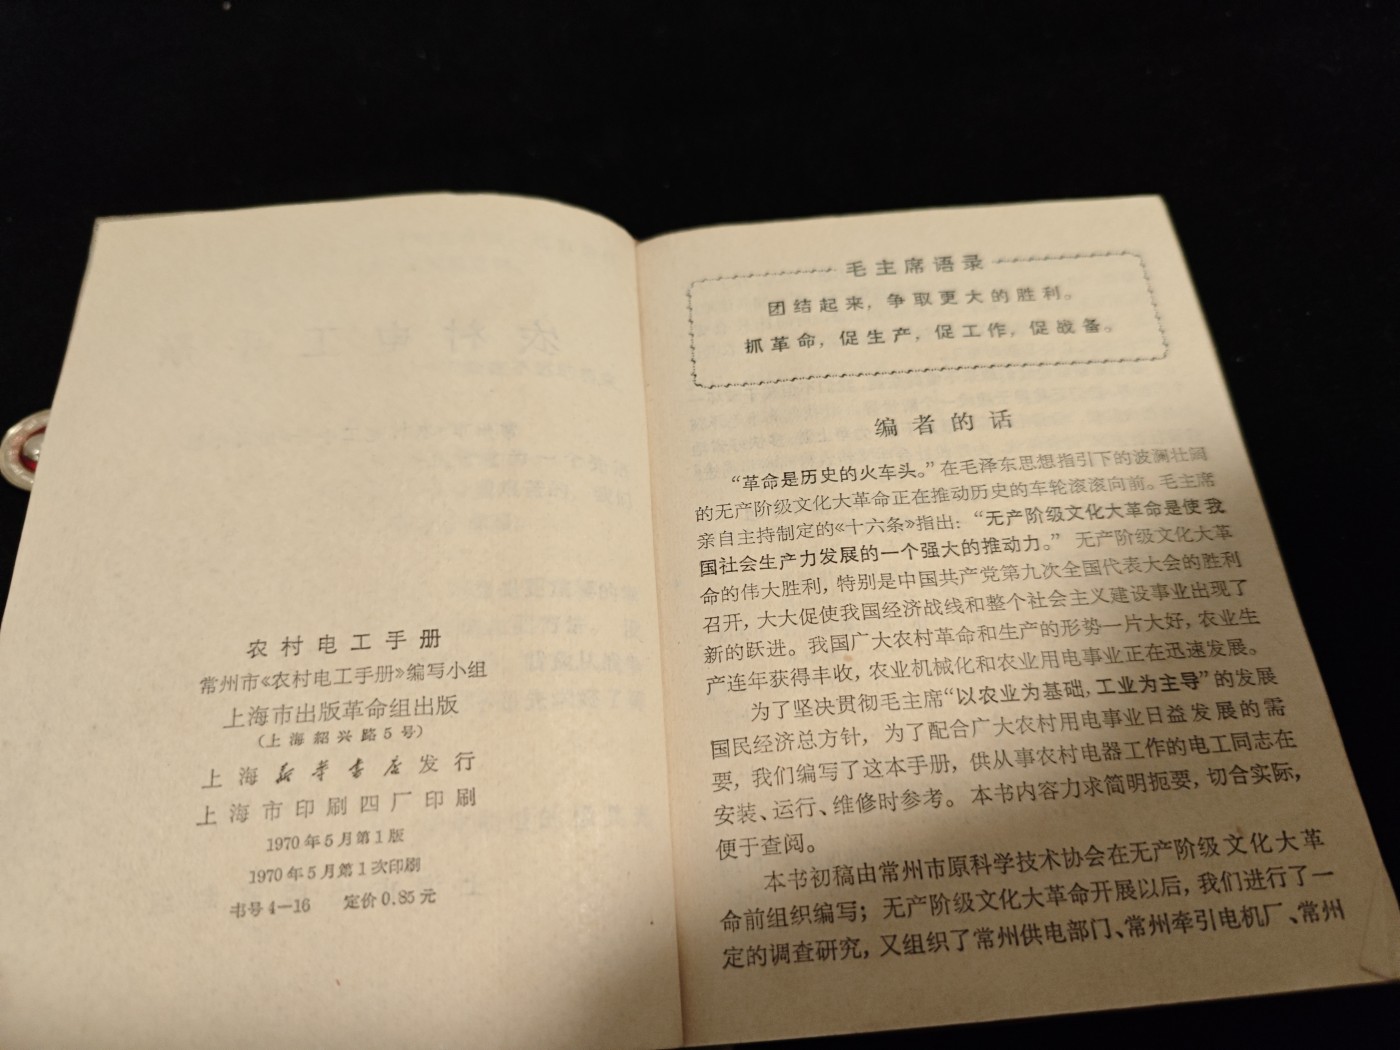 农村电工手册
常州市《农村电工手册》编写小组
上海市出版革命组出版
（上海紹兴路5号）
上海新华書店发行
上海市印刷四厂印刷
1970年5月第1版
1970年5月第1次印刷
书号4—16 定价0.85元
毛主席语录
团结起来，争取更大的胜利。
抓革命，促生产，促工作，促战备。
编者的话
“革命是历史的火车头。”在毛泽东思想指引下的波澜壮阔
的无产阶级文化大革命正在推动历史的车轮滚滚向前。毛主席
亲自主持制定的《十六条》指出：“无产阶级文化大革命是使我
国社会生产力发展的一个强大的推动力。”无产阶级文化大革
命的伟大胜利，特别是中国共产党第九次全国代表大会的胜利
召开，大大促使我国经济战线和整个社会主义建设事业出现了
新的跃进。我国广大农村革命和生产的形势一片大好，农业生
产连年获得丰收，农业机械化和农业用电事业正在迅速发展。
为了坚决贯彻毛主席“以农业为基础，工业为主导”的发展
国民经济总方针，为了配合广大农村用电事业日益发展的需
要，我们编写了这本手册，供从事农村电器工作的电工同志在
安装、运行、维修时参考。本书内容力求简明扼要，切合实际，
便于查阅。
本书初稿由常州市原科学技术协会在无产阶级文化大革
命前组织编写；无产阶级文化大革命开展以后，我们进行了一
定的调查研究，又组织了常州供电部门、常州牵引电机厂、常州